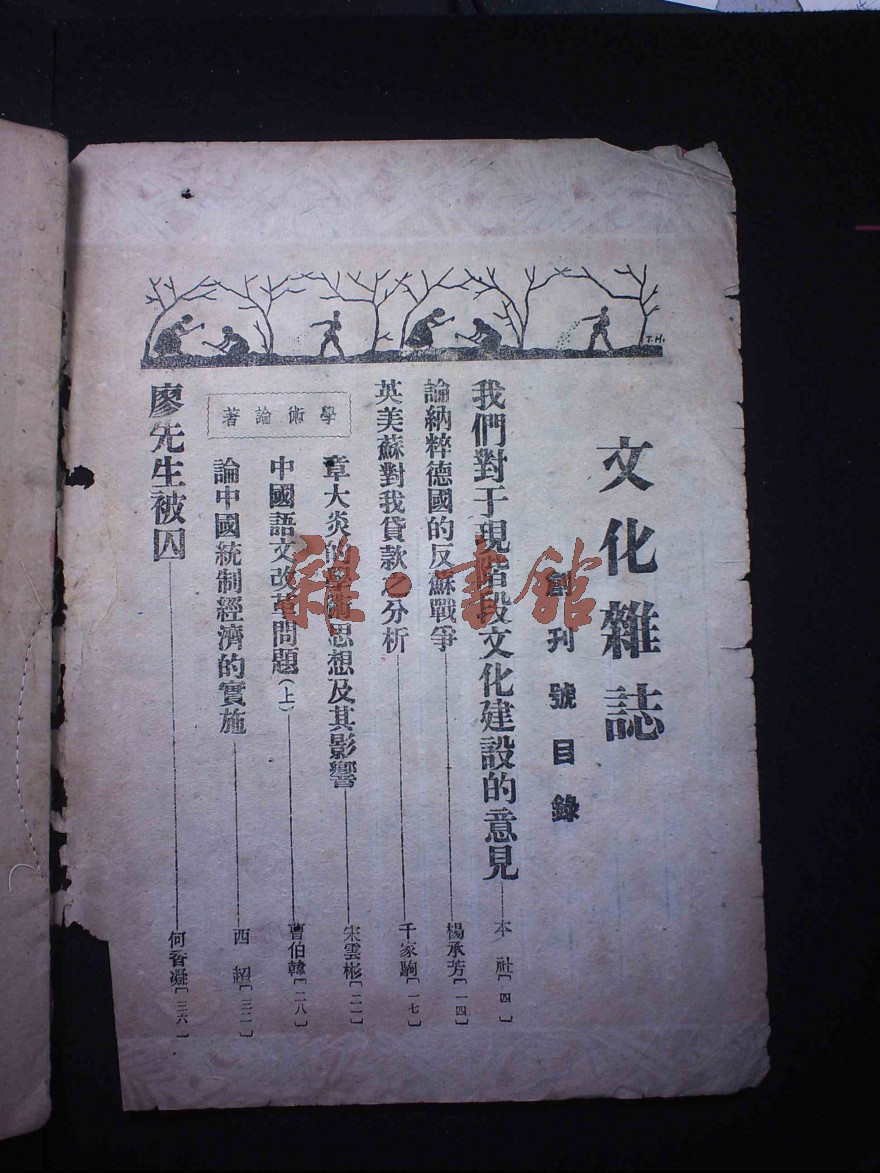 文化雜誌
創刊號目錄
我們對于現階段文化建設的意見 本社〔四〕
論納粹德國的反蘇戰爭 楊承芳〔一四〕
英美蘇對我貸款之分析 千家駒〔一七〕
學術論著
章太炎的學術思想及其影響 宋雲彬〔二一〕
中國語文改革問題(上) 曹伯韓〔二八〕
論中國統制經濟的實施 西超〔三二〕
廖先生被囚 何香凝〔三六〕
T.H.
雜·書館